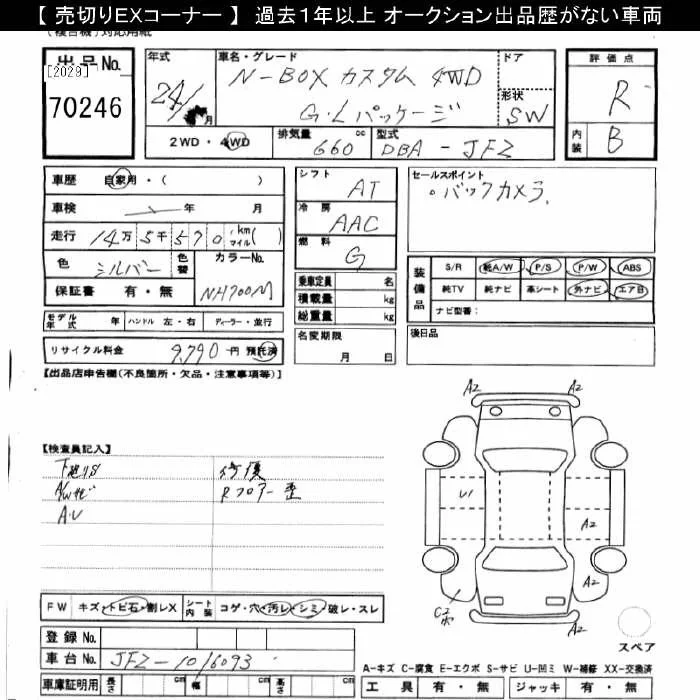 【 売切りEXコーナー 】 過去1年以上 オークション出品歴がない車両
(複合機)対応用紙
出品No.
[2029]
70246
年式
24/
月
車名・グレード
N-BOX カスタム 4WD
G・Lパッケージ
ドア
形状
SW
評価点
R
内装
B
2WD・4WD
排気量
660
cc
型式
DBA - JFZ
車歴 自家用・( )
車検 年 月
走行 14万 5千 5 7 0 km マイル ( )
色 シルバー
色替
カラーNo.
NH700M
保証書 有・無
モデル年式 年 ハンドル 左・右 ディーラー・並行
リサイクル料金 9,790 円 預託済
シフト
AT
冷房
AAC
燃料
G
乗車定員 名
積載量 kg
総重量 kg
名変期限
月 日
セールスポイント
。バックカメラ、
装備品
S/R 純A/W P/S P/W ABS
純TV 純ナビ 革シート 外ナビ エアB
ナビ型番:
後日品
【出品店申告欄(不良箇所・欠品・注意事項等)】
【検査員記入】
下廻りS 修復
A/Wサビ Rフロアー歪
A・U
A2
A2
A2
U1
A2
A2
A2
FW キズ・トビ石・割レX
シート内装 コゲ・穴・汚レ・シミ・破レ・スレ
登録 No.
車台 No. JFZ-1016093
車庫証明用 長さ cm 幅 cm 高さ cm
スペア
A-キズ C-腐食 E-エクボ S-サビ U-凹ミ W-補修 XX-交換済
工具 有・無 ジャッキ 有・無